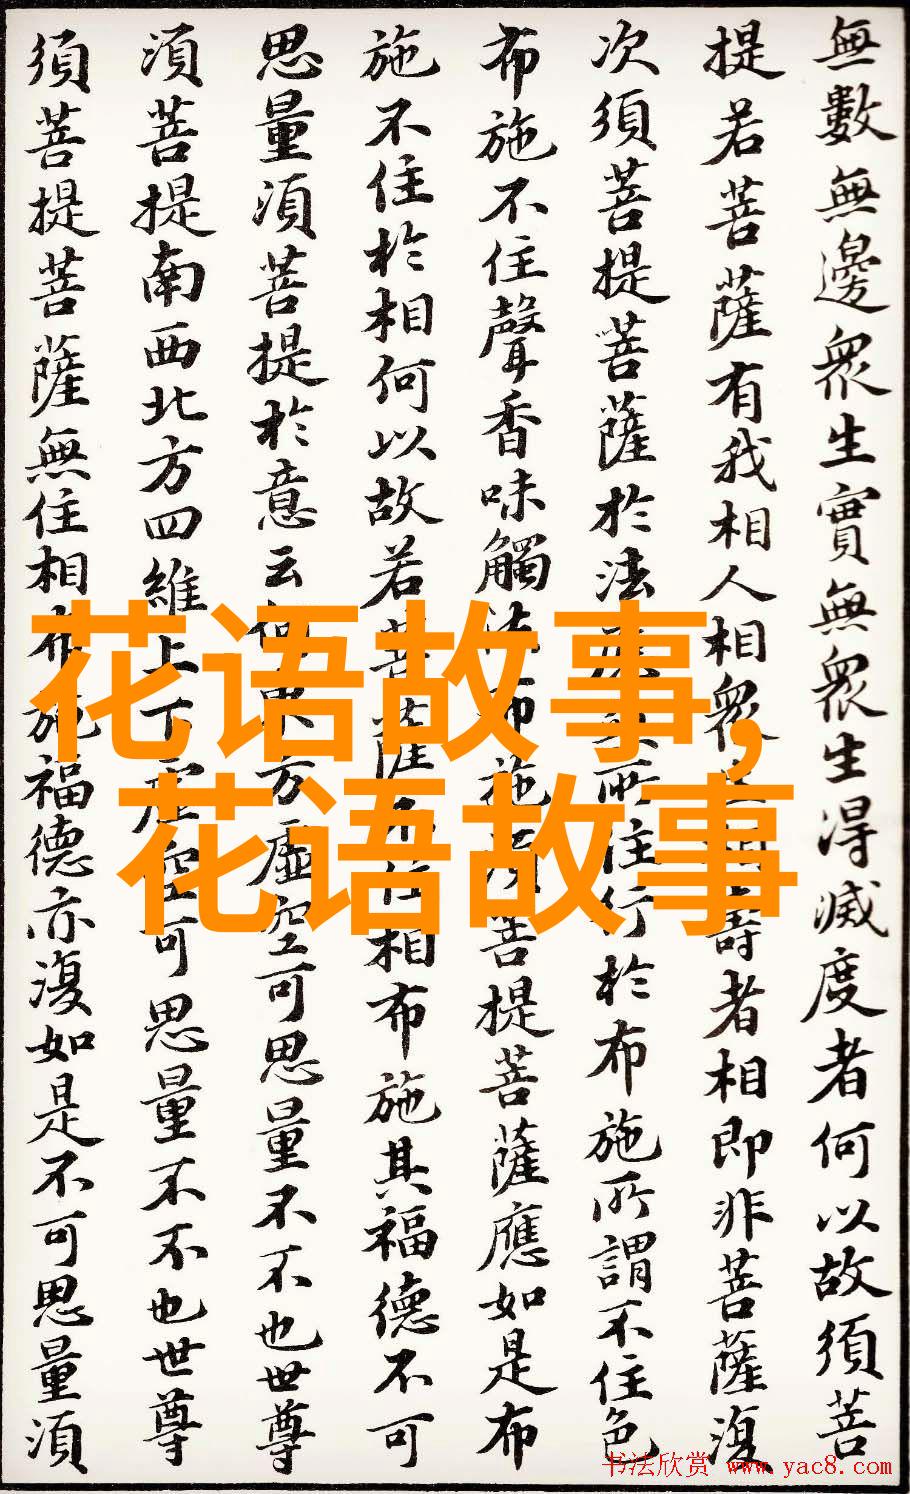 無數無邊衆生實無衆生得滅度者何以故須菩
提若菩薩有我相人相衆生相壽者相即非菩薩復
次須菩提菩薩於法應無所住行於布施所謂不住色
布施不住聲香味觸法布施須菩提菩薩應如是布
施不住於相何以故若菩薩不住相布施其福德不可
思量須菩提於意云何東方虛空可思量不不也世尊
須菩提南西北方四維上下虛空可思量不不也世尊
須菩提菩薩無住相布施福德亦復如是不可思量須
花语故事,
花语故事
书法欣赏 www.yac8.com